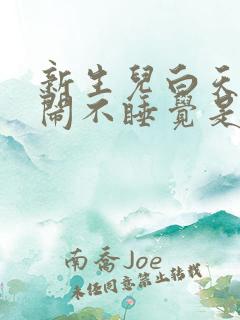 新生兒白天
鬧不睡覺是
南喬Joe
未經同意禁止轉載